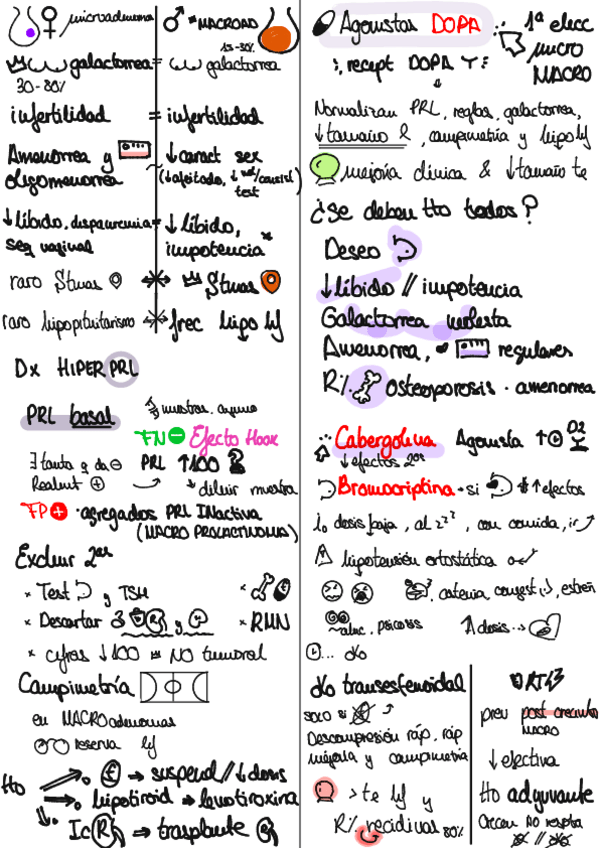 ♀ microadenoma
♂ = MACROAD
galactorrea = galactorrea
30-80%
15-30%
infertilidad = infertilidad
Amenorrea y
oligomenorrea
↓ caract sex
(↓ afeitado, ↓
test
↓ libido, dispareunia
seq vaginal
↓ libido,
impotencia *
raro Stmas
Stmas
raro hipopituitarismo
frec hipo hf
Dx HIPER PRL
PRL basal
muestra. ayuno
FN ⊖ Efecto Hook
∃ tanta q da ⊖
Realmt ⊕
PRL ↑100
↓ diluir muestra
FP ⊕ · agregados PRL INactiva
(MACRO PROLACTINOMA)
Excluir 2as
× Test y TSH
× Descartar
× RMN
× cifras ↓100 = NO tumoral
Campimetría
en MACROadenomas
reserva hf
tto
→ suspend // ↓ dosis
→ hipotiroid → levotiroxina
IcR → trasplante
Agonistas DOPA
1ª elecc
micro
MACRO
recept DOPA
Normalizan PRL, reglas, galactorrea,
↓ tamaño &, campimetría y hipo hf
mejoría clínica & ↓ tamaño te
¿Se deben tto todos?
Deseo
↓ libido // impotencia
Galactorrea molesta
Amenorrea, regulares
R% osteoporosis · amenorrea
Cabergolina Agonista ↑ D2
↓ efectos 2os
Bromocriptina · si $ ↑ efectos
dosis baja, al zzz, con comida, ir ↗
hipotensión ortostática
astenia, congest, estreñ
aluc, psicosis
↑ dosis
transesfenoidal
solo si
Descompresión ráp, ráp
mejoría y campimetría
> te hf y
R% recidivas 80%
RT
prev post creanita
MACRO
↓ efectiva
tto adyuvante
Crecen NO respta